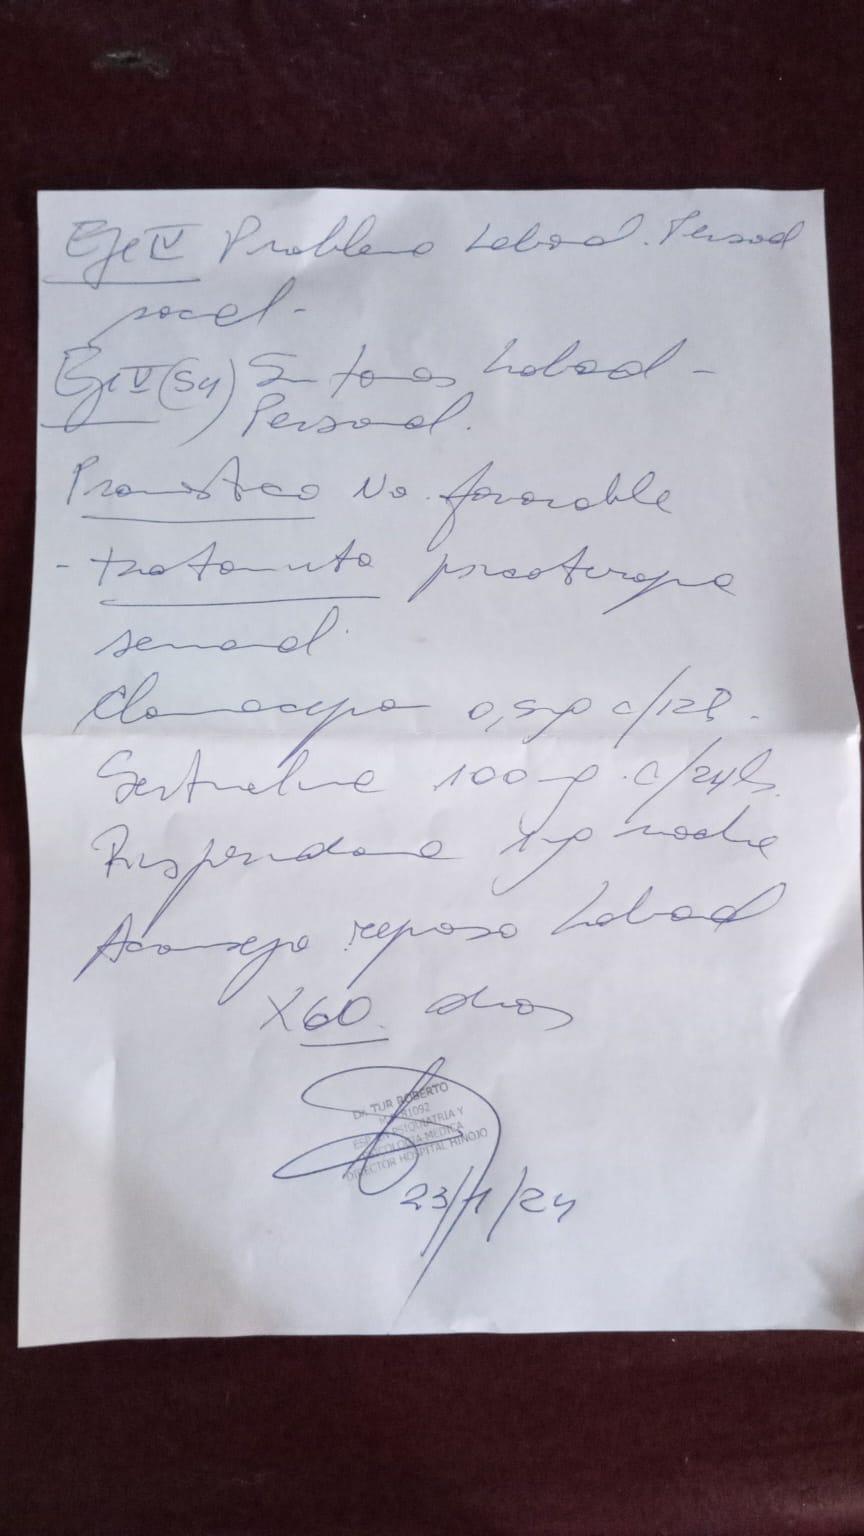 Eje IV Problema Laboral. Personal
social -
Eje V (54) Sintomas Laboral -
Personal.
Pronostico No favorable
- tratamiento psicoterapia
semanal.
Clonazepan 0,5mg c/12h.
Sertralina 100mg. c/24h.
Risperidona 1mg noche
Aconsejo reposo Laboral
X 60. dias
DR. TUR ROBERTO
ESP. EN PSIQUIATRIA Y
PSICOLOGIA MEDICA
DIRECTOR HOSPITAL HINOJO
23/1/24